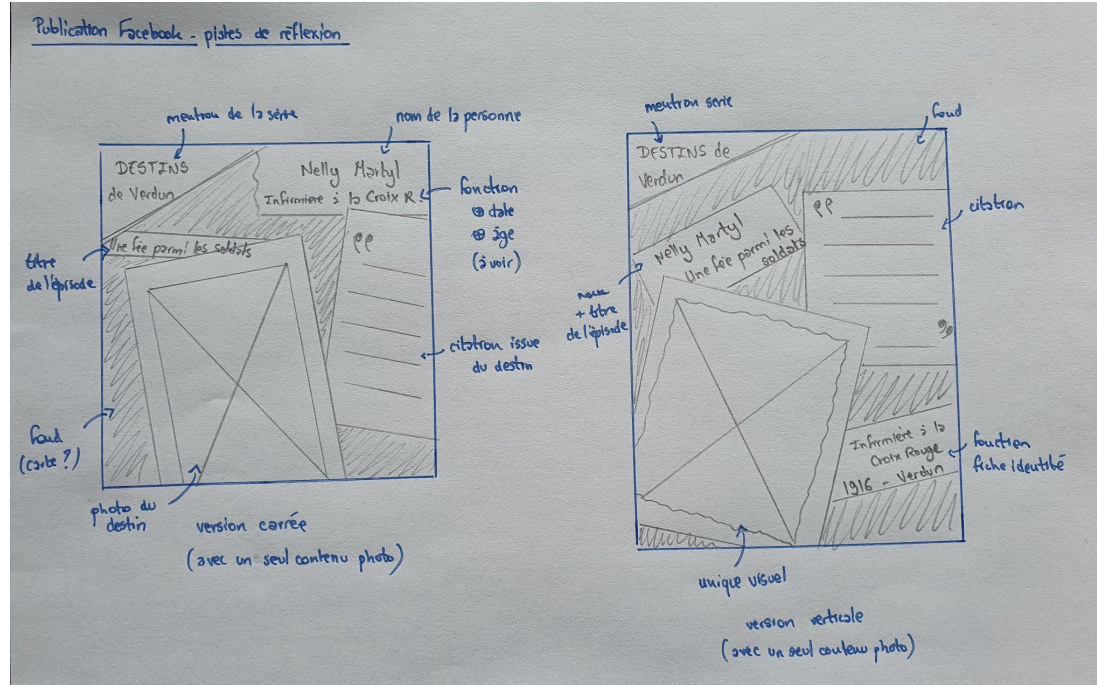 Publication Facebook - pistes de réflexion
mention de la série
nom de la personne
DESTINS
de Verdun
Nelly Martyl
Infirmière à la Croix R.
fonction
⊕ date
⊕ âge
(à voir)
Une fée parmi les soldats
titre
de l'épisode
citation issue
du destin
fond
(carte ?)
photo du
destin
version carrée
(avec un seul contenu photo)
mention série
fond
DESTINS de
Verdun
citation
Nelly Martyl
Une fée parmi les
soldats
nom
+ titre
de l'épisode
Infirmière à la
Croix Rouge
1916 - Verdun
fonction
fiche identité
unique visuel
version verticale
(avec un seul contenu photo)